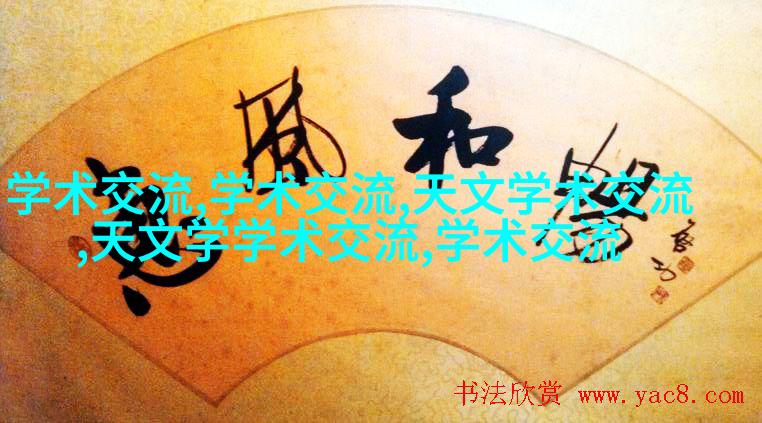 惠風和暢
启功
学术交流,学术交流,天文学术交流
,天文学学术交流,学术交流
书法欣赏 www.yac8.com